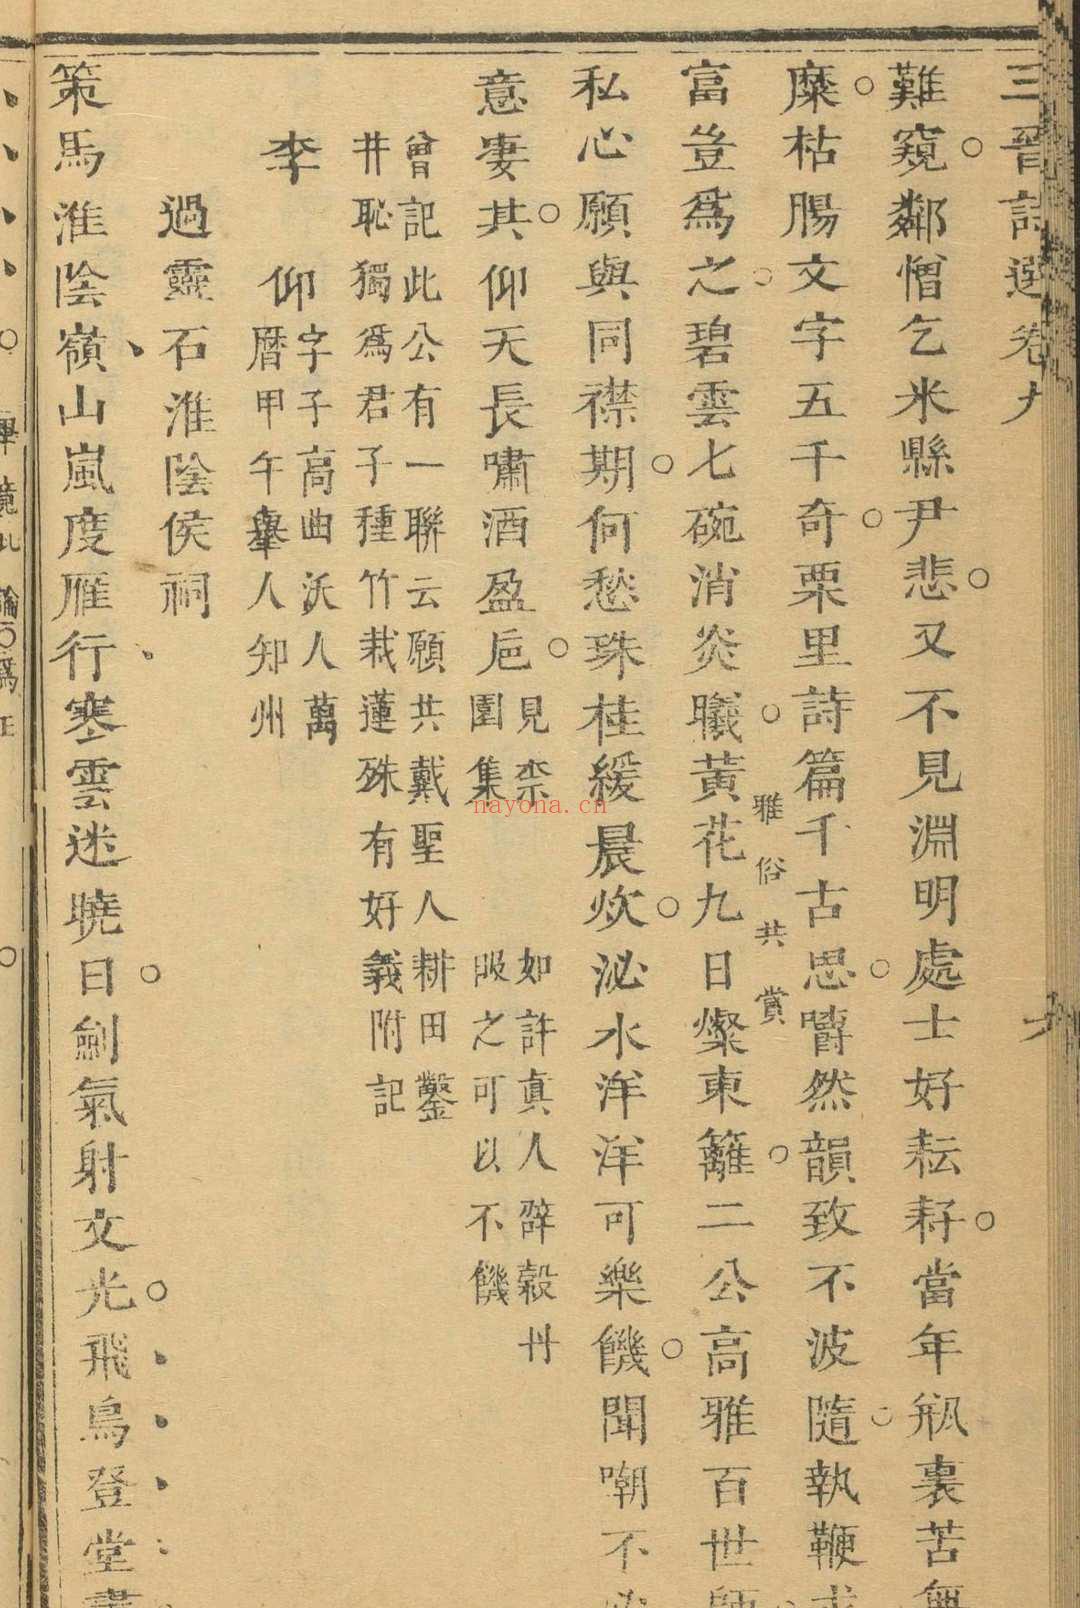 三晉詩選卷九
難窺鄰憎乞米縣尹悲又不見淵明處士好耘耔當年瓶裏苦無
糜枯腸文字五千奇栗里詩篇千古思嚼然韻致不波隨執鞭求
富豈爲之碧雲七碗消炎曦黃花九日燦東籬二公高雅百世師
雅俗共賞
私心願與同襟期何愁珠桂緩晨炊泌水洋洋可樂饑聞嘲不必
意悽其仰天長嘯酒盈巵
見柰
園集
如許真人辟穀丹
吸之可以不饑
曾記此公有一聯云願共戴聖人耕田鑿
井恥獨爲君子種竹栽蓮殊有好義附記
李仰
字子高曲沃人萬
曆甲午舉人知州
過靈石淮陰侯祠
策馬淮陰嶺山嵐度雁行寒雲迷曉日劍氣射文光飛鳥登堂
nayona.cn